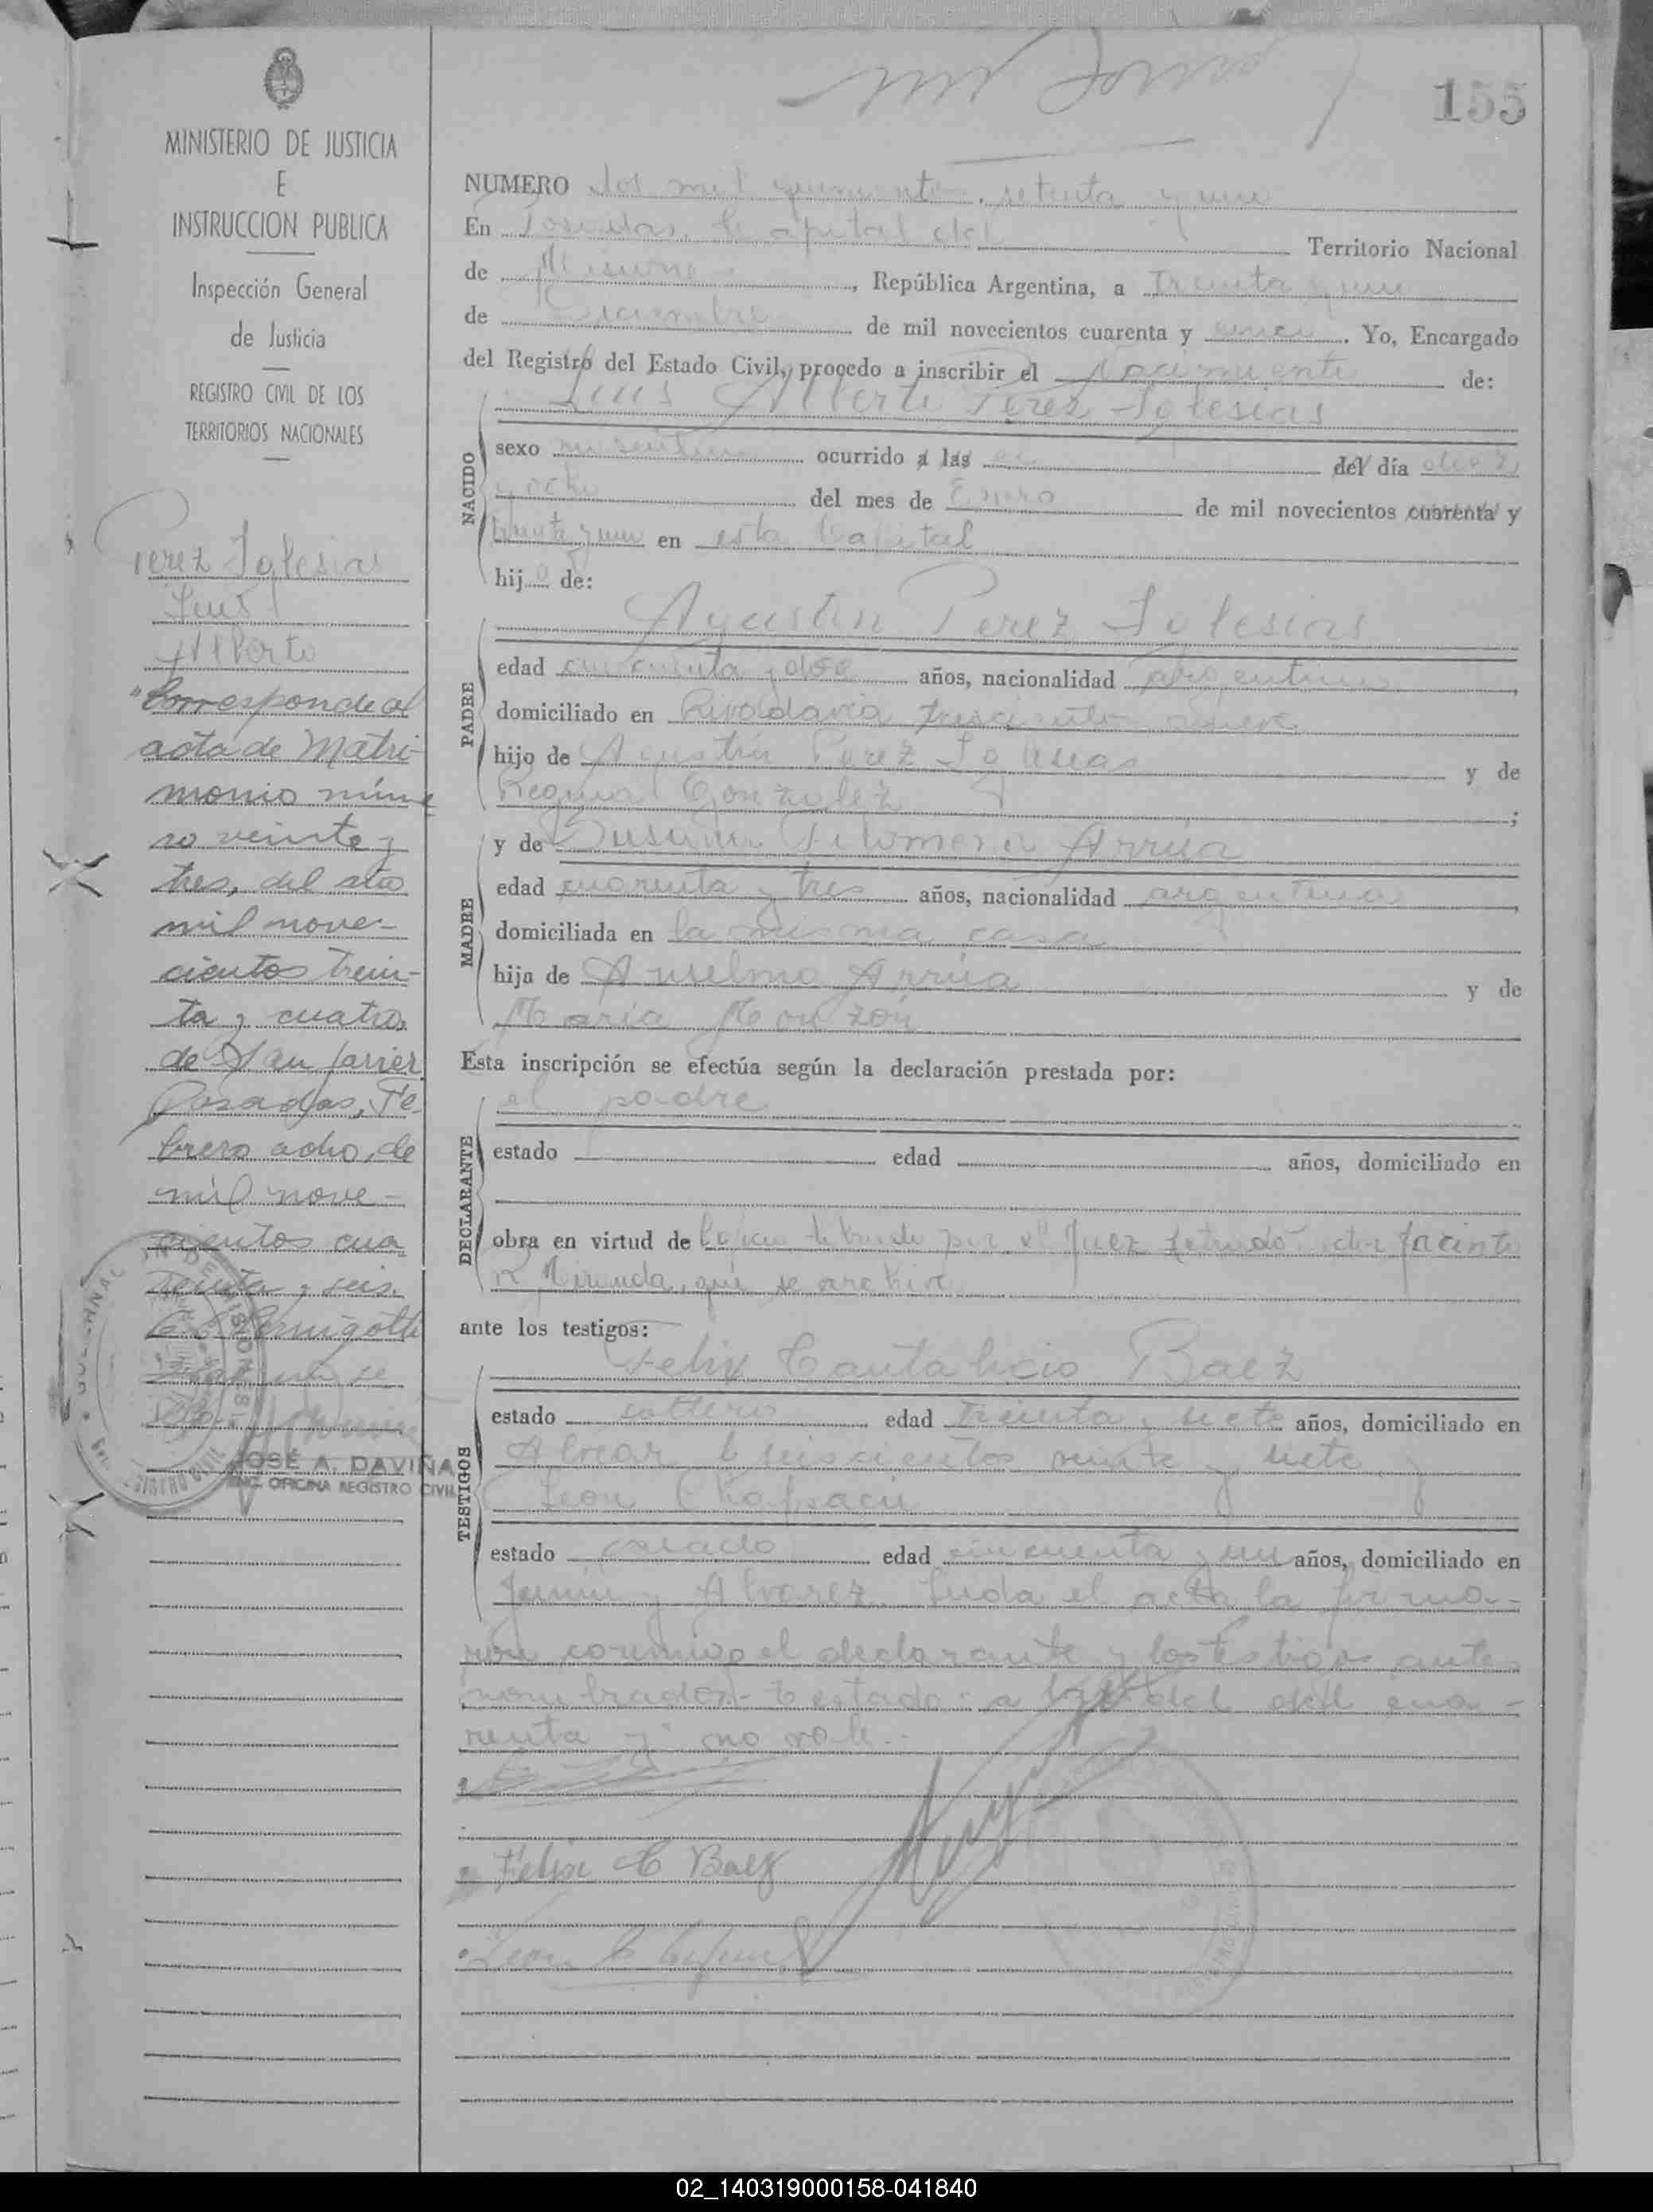 155
MINISTERIO DE JUSTICIA
E
INSTRUCCION PUBLICA
Inspección General
de Justicia
REGISTRO CIVIL DE LOS
TERRITORIOS NACIONALES
Perez Iglesias
Luis
Alberto
"Corresponde al
acta de Matri-
monio núme
ro veinte y
tres, del año
mil nove-
cientos trein-
ta y cuatro,
de San Javier
Posadas, Fe-
brero ocho, de
mil nove-
cientos cua
renta y seis.
JOSÉ A. DAVIÑA
ENC. OFICINA REGISTRO CIVIL
NUMERO dos mil quinientos setenta y uno
En Posadas, Capital del Territorio Nacional
de Misiones, República Argentina, a treinta y uno
de Diciembre de mil novecientos cuarenta y cinco. Yo, Encargado
del Registro del Estado Civil, procedo a inscribir el Nacimiento de:
NACIDO
Luis Alberto Perez Iglesias
sexo masculino ocurrido a las el del día diez
y ocho del mes de Enero de mil novecientos cuarenta y
treinta y uno en esta Capital
hijo de:
PADRE
Agustin Perez Iglesias
edad cincuenta y dos años, nacionalidad argentino,
domiciliado en Rivadavia trescientos nueve
hijo de Agustin Perez Iglesias y de
Regina Gonzalez;
MADRE
y de Susana Filomena Arrúa
edad cuarenta y tres años, nacionalidad argentina,
domiciliada en la misma casa
hija de Anselmo Arrúa y de
María Monzón
Esta inscripción se efectúa según la declaración prestada por:
DECLARANTE
el padre
estado edad años, domiciliado en
obra en virtud de por el Juez Letrado doctor Jacinto
R. Miranda, que se archiva
ante los testigos:
TESTIGOS
Felix Cantalicio Baez
estado soltero edad treinta y siete años, domiciliado en
Alvear seiscientos veinte y siete y
Leon
estado casado edad cincuenta y un años, domiciliado en
Junin y Alvarez. Leida el acta la firma-
ron conmigo el declarante y los testigos antes
nombrados.- Testado: a las del cua-
renta y: no vale.-
Felix C Baez
02_140319000158-041840